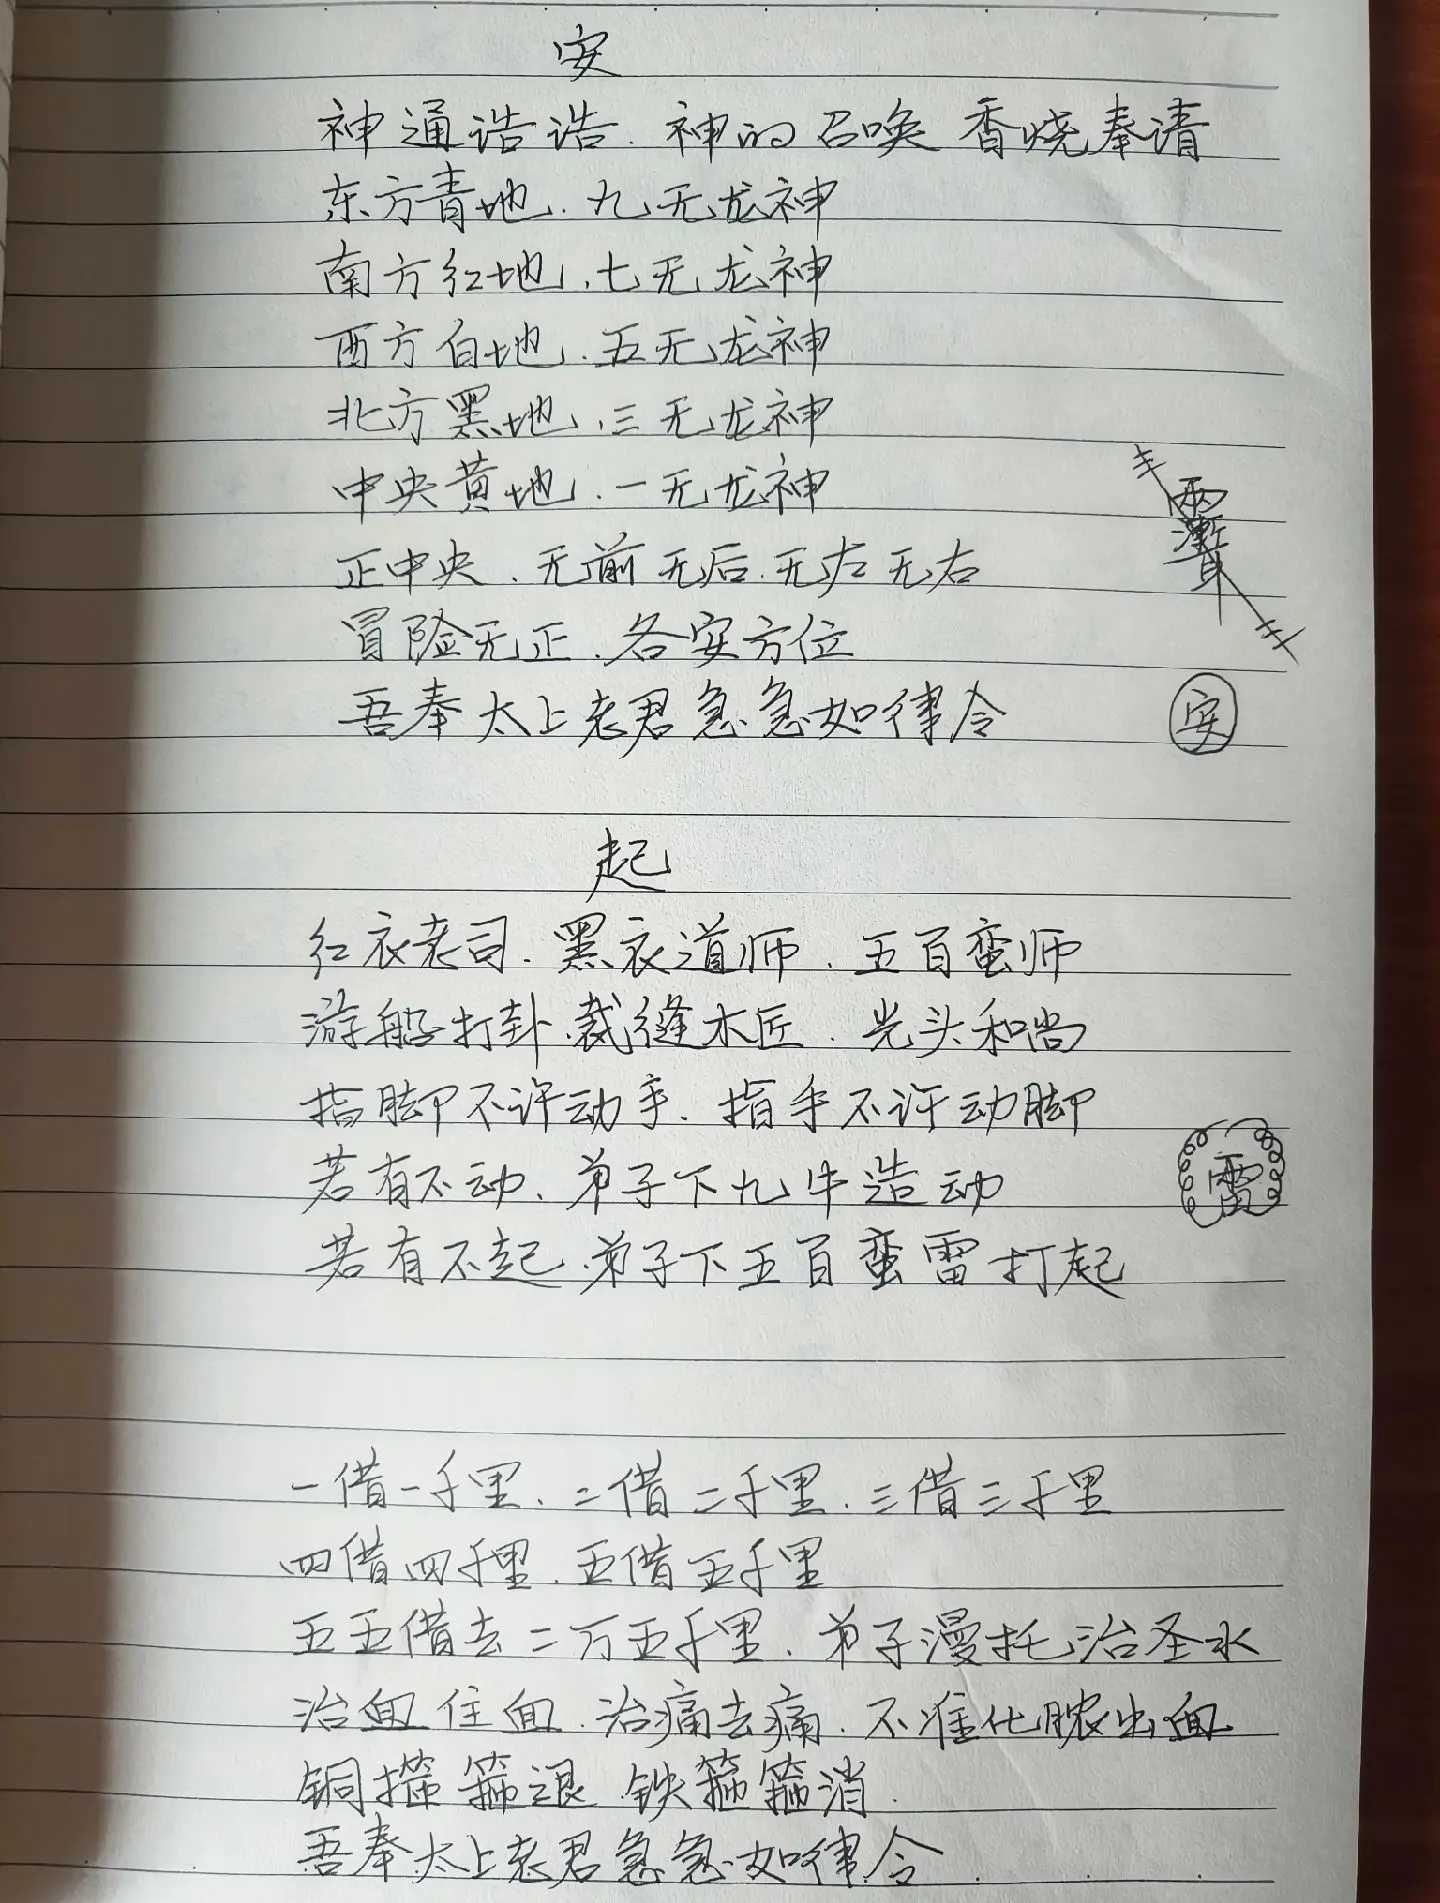 安
神通浩浩.神的召唤 香烧奉请
东方青地.九无龙神
南方红地.七无龙神
西方白地.五无龙神
北方黑地.三无龙神
中央黄地.一无龙神
正中央.无前无后.无左无右
冒险无正.各安方位
吾奉太上老君急急如律令
安
起
红衣老司.黑衣道师.五百蛮师
游船打卦.裁缝木匠.光头和尚
指脚不许动手.指手不许动脚
若有不动、弟子下九牛造动
若有不起.弟子下五百蛮雷打起
雷
一借一千里.二借二千里.三借三千里
四借四千里.五借五千里
五五借去二万五千里.弟子漫托治圣水
治血住血.治痛去痛.不准化脓出血
铜 箍退.铁箍箍消.
吾奉太上老君急急如律令.